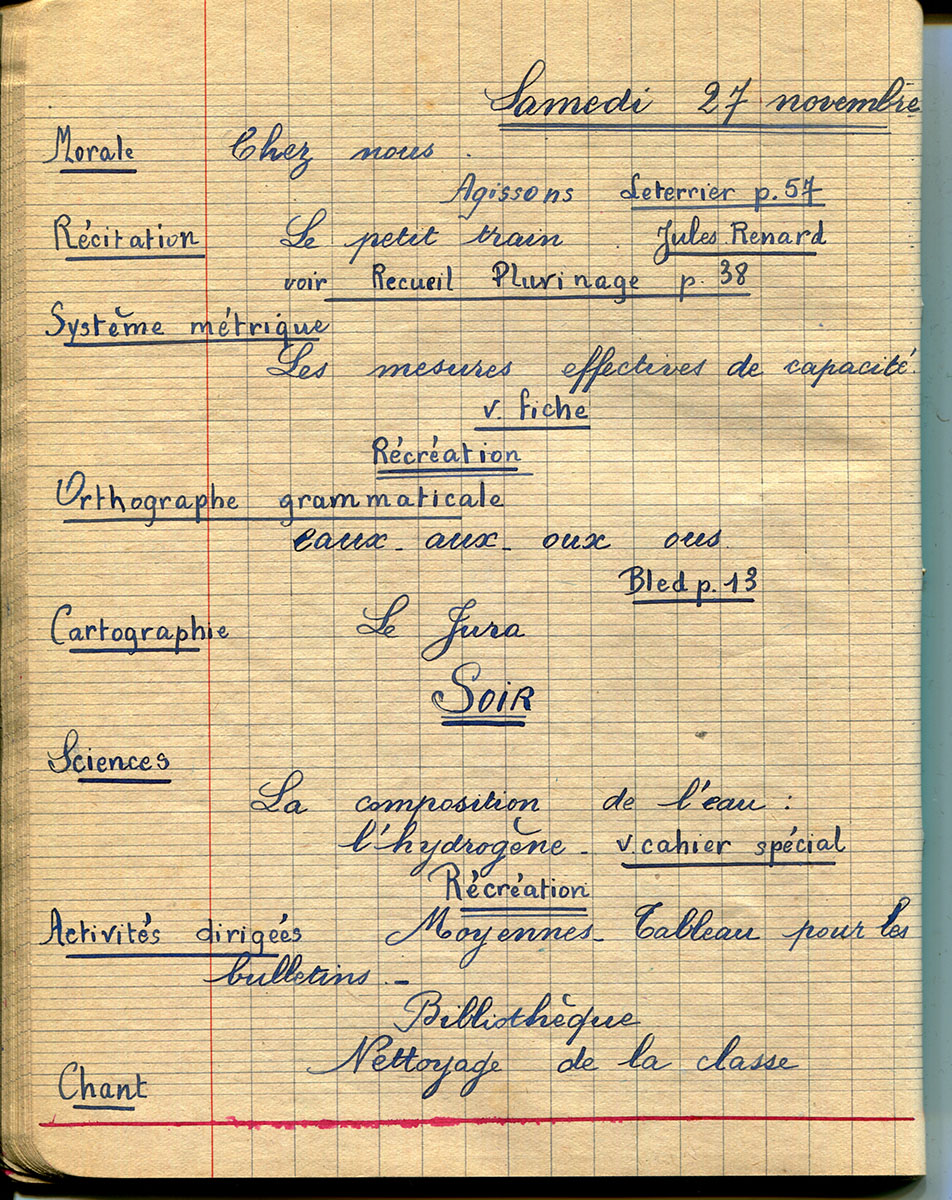 Samedi 27 novembre
Morale Chez nous.
Agissons Leterrier p.57
Récitation Le petit train Jules Renard
voir Recueil Pluvinage p. 38
Système métrique
Les mesures effectives de capacité.
v. fiche
Récréation
Orthographe grammaticale
eaux - aux - oux ous
Bled p. 13
Cartographie Le Jura
SOIR
Sciences
La composition de l'eau :
l'hydrogène - v. cahier spécial
Récréation
Activités dirigées Moyennes - Tableau pour les
bulletins -
Bibliothèque
Nettoyage de la classe
Chant